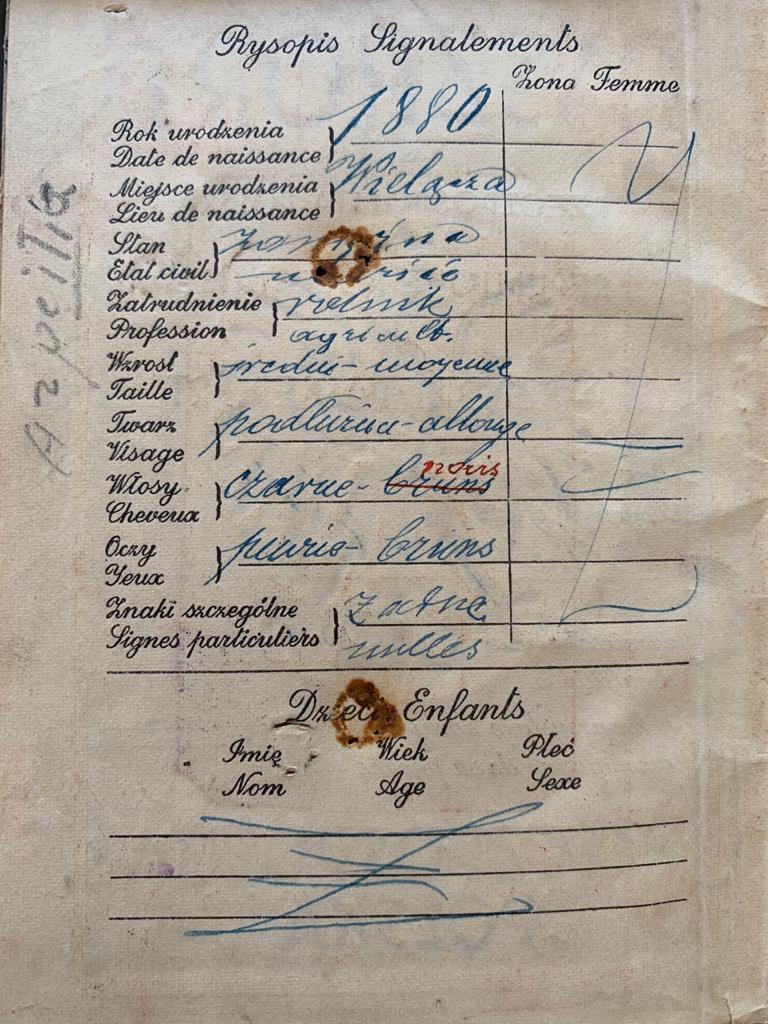 Rysopis Signalements
Żona Femme
Rok urodzenia 1880
Date de naissance
Miejsce urodzenia Wielącza
Lieu de naissance
Stan
Etat civil
Zatrudnienie rolnik
Profession agricult.
Wzrost średni - moyenne
Taille
Twarz - allonge
Visage
noirs
Włosy czarne - bruns
Cheveux
Oczy piwne - bruns
Yeux
Znaki szczególne żadne
Signes particuliers nulles
Dzieci Enfants
Imię Wiek Płeć
Nom Age Sexe